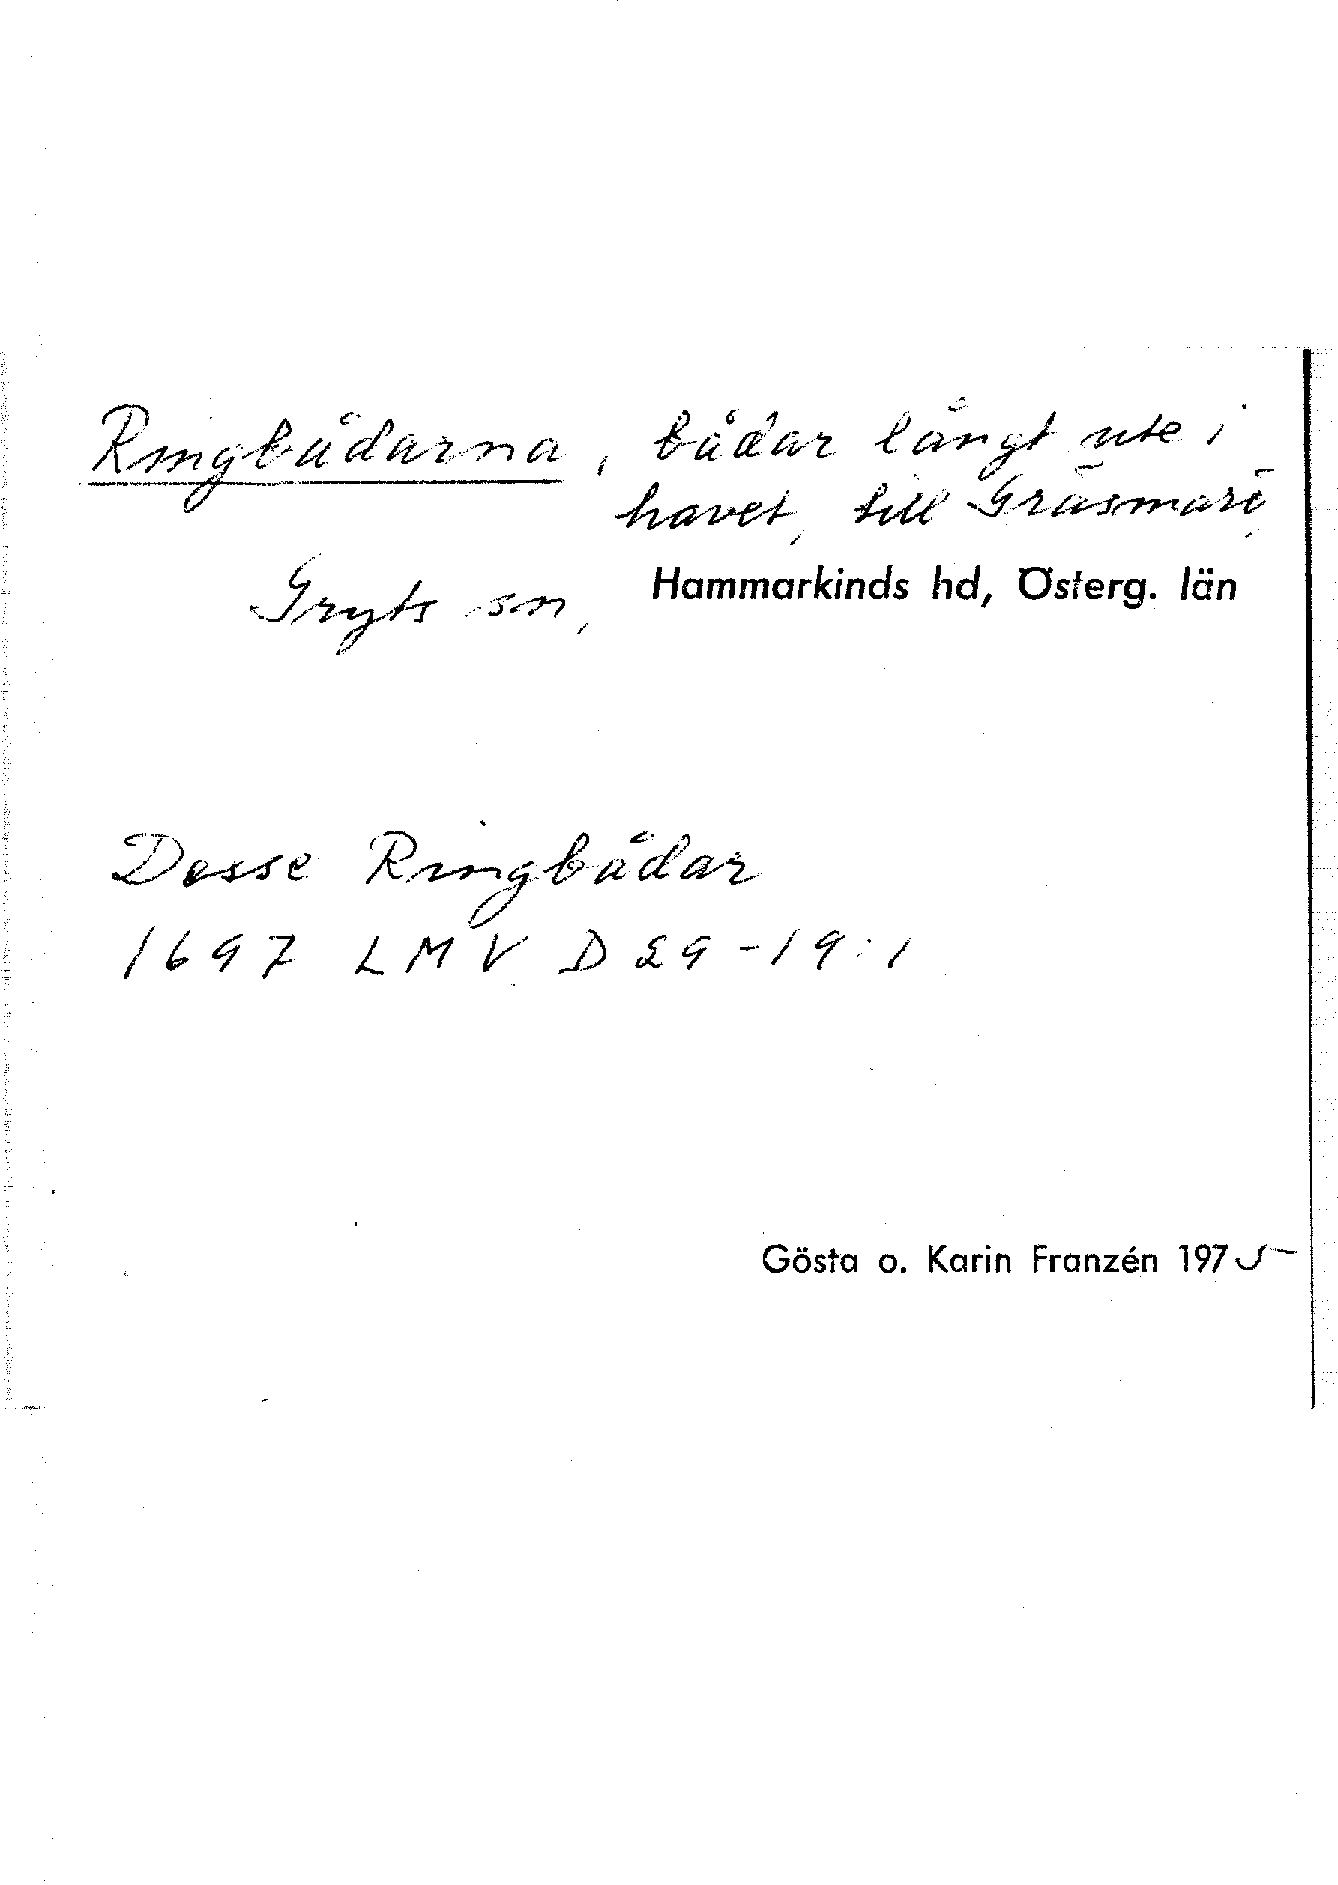 Ringbådarna, bådar långt ute i
havet, till Gräsmarö,
Gryts sn, Hammarkinds hd, Österg. län
Desse Ringbådar
1697 LMV D29-19:1
Gösta o. Karin Franzén 1975